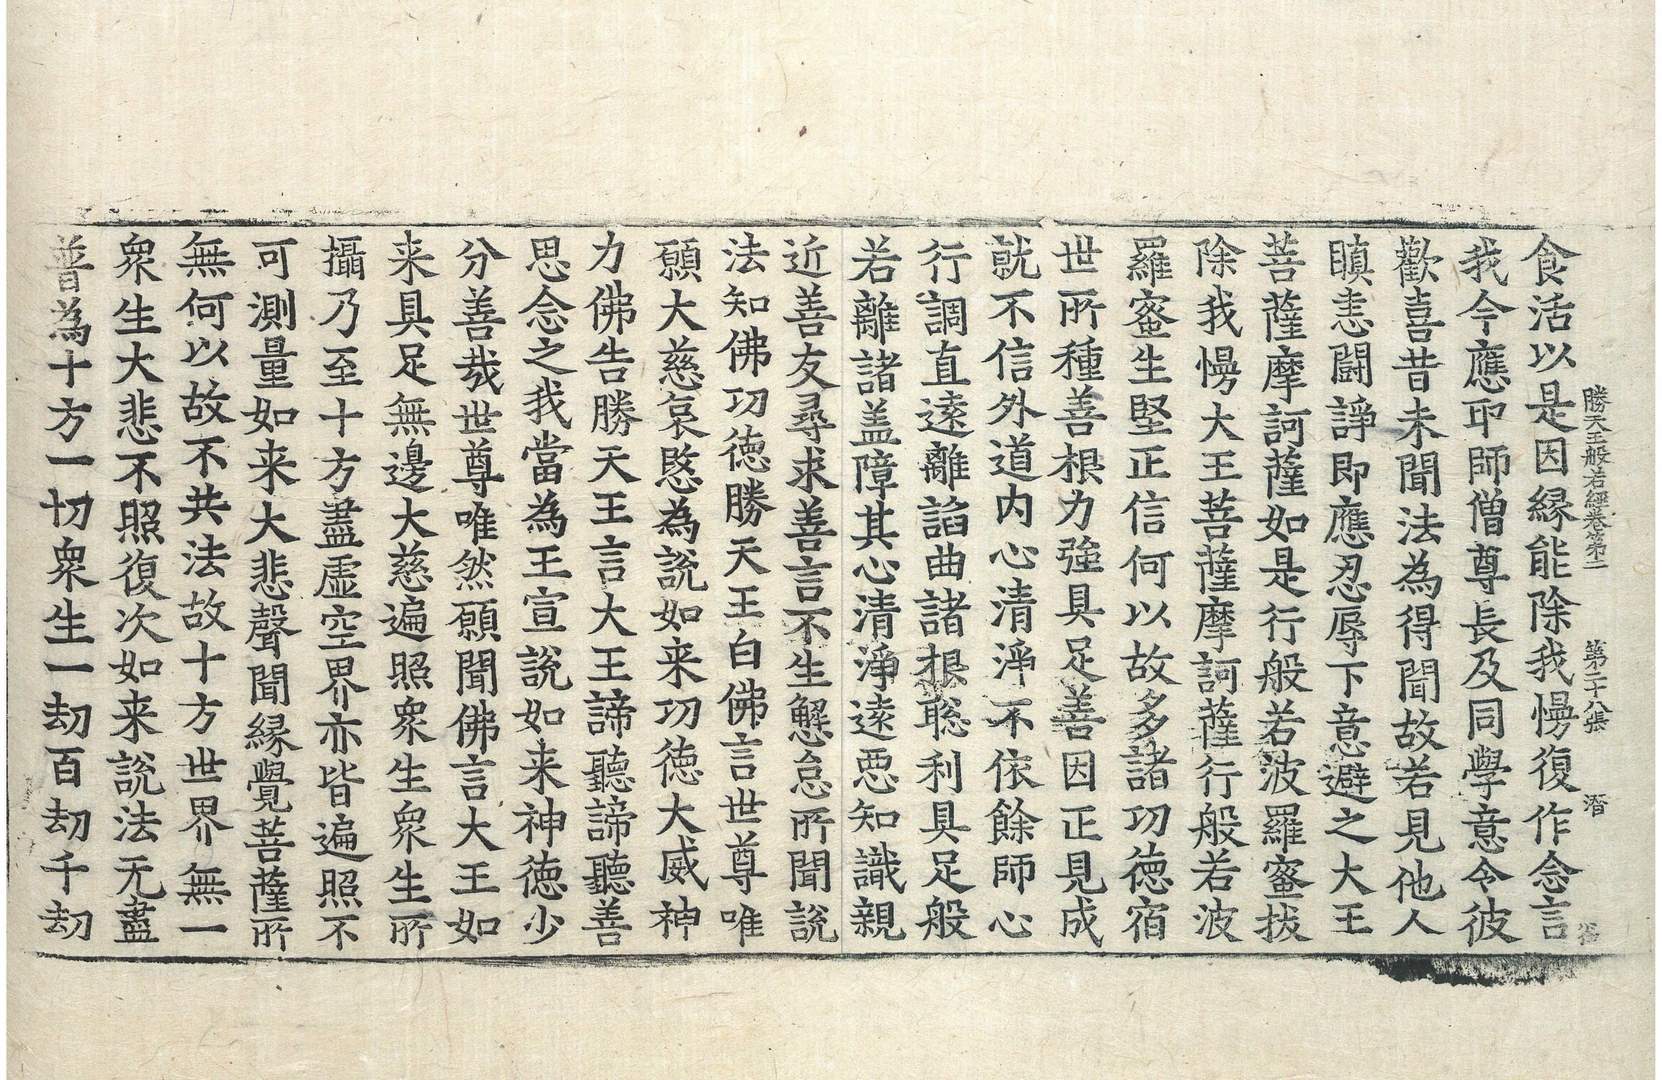 勝天王般若經卷第二 第二十八張 潛
食活以是因緣能除我慢復作念言
我今應卬師僧尊長及同學意令彼
歡喜昔未聞法為得聞故若見他人
瞋恚鬪諍即應忍辱下意避之大王
菩薩摩訶薩如是行般若波羅蜜拔
除我慢大王菩薩摩訶薩行般若波
羅蜜生堅正信何以故多諸功德宿
世所種善根力強具足善因正見成
就不信外道內心清淨不依餘師心
行調直遠離諂曲諸根聡利具足般
若離諸盖障其心清淨遠惡知識親
近善友尋求善言不生懈怠所聞說
法知佛功德勝天王白佛言世尊唯
願大慈哀愍為說如来功德大威神
力佛告勝天王言大王諦聽諦聽善
思念之我當為王宣說如来神德少
分善哉世尊唯然願聞佛言大王如
来具足無邊大慈遍照眾生眾生所
攝乃至十方盡虛空界亦皆遍照不
可測量如来大悲聲聞緣覺菩薩所
無何以故不共法故十方世界無一
眾生大悲不照復次如来說法无盡
普為十方一切眾生一劫百劫千劫